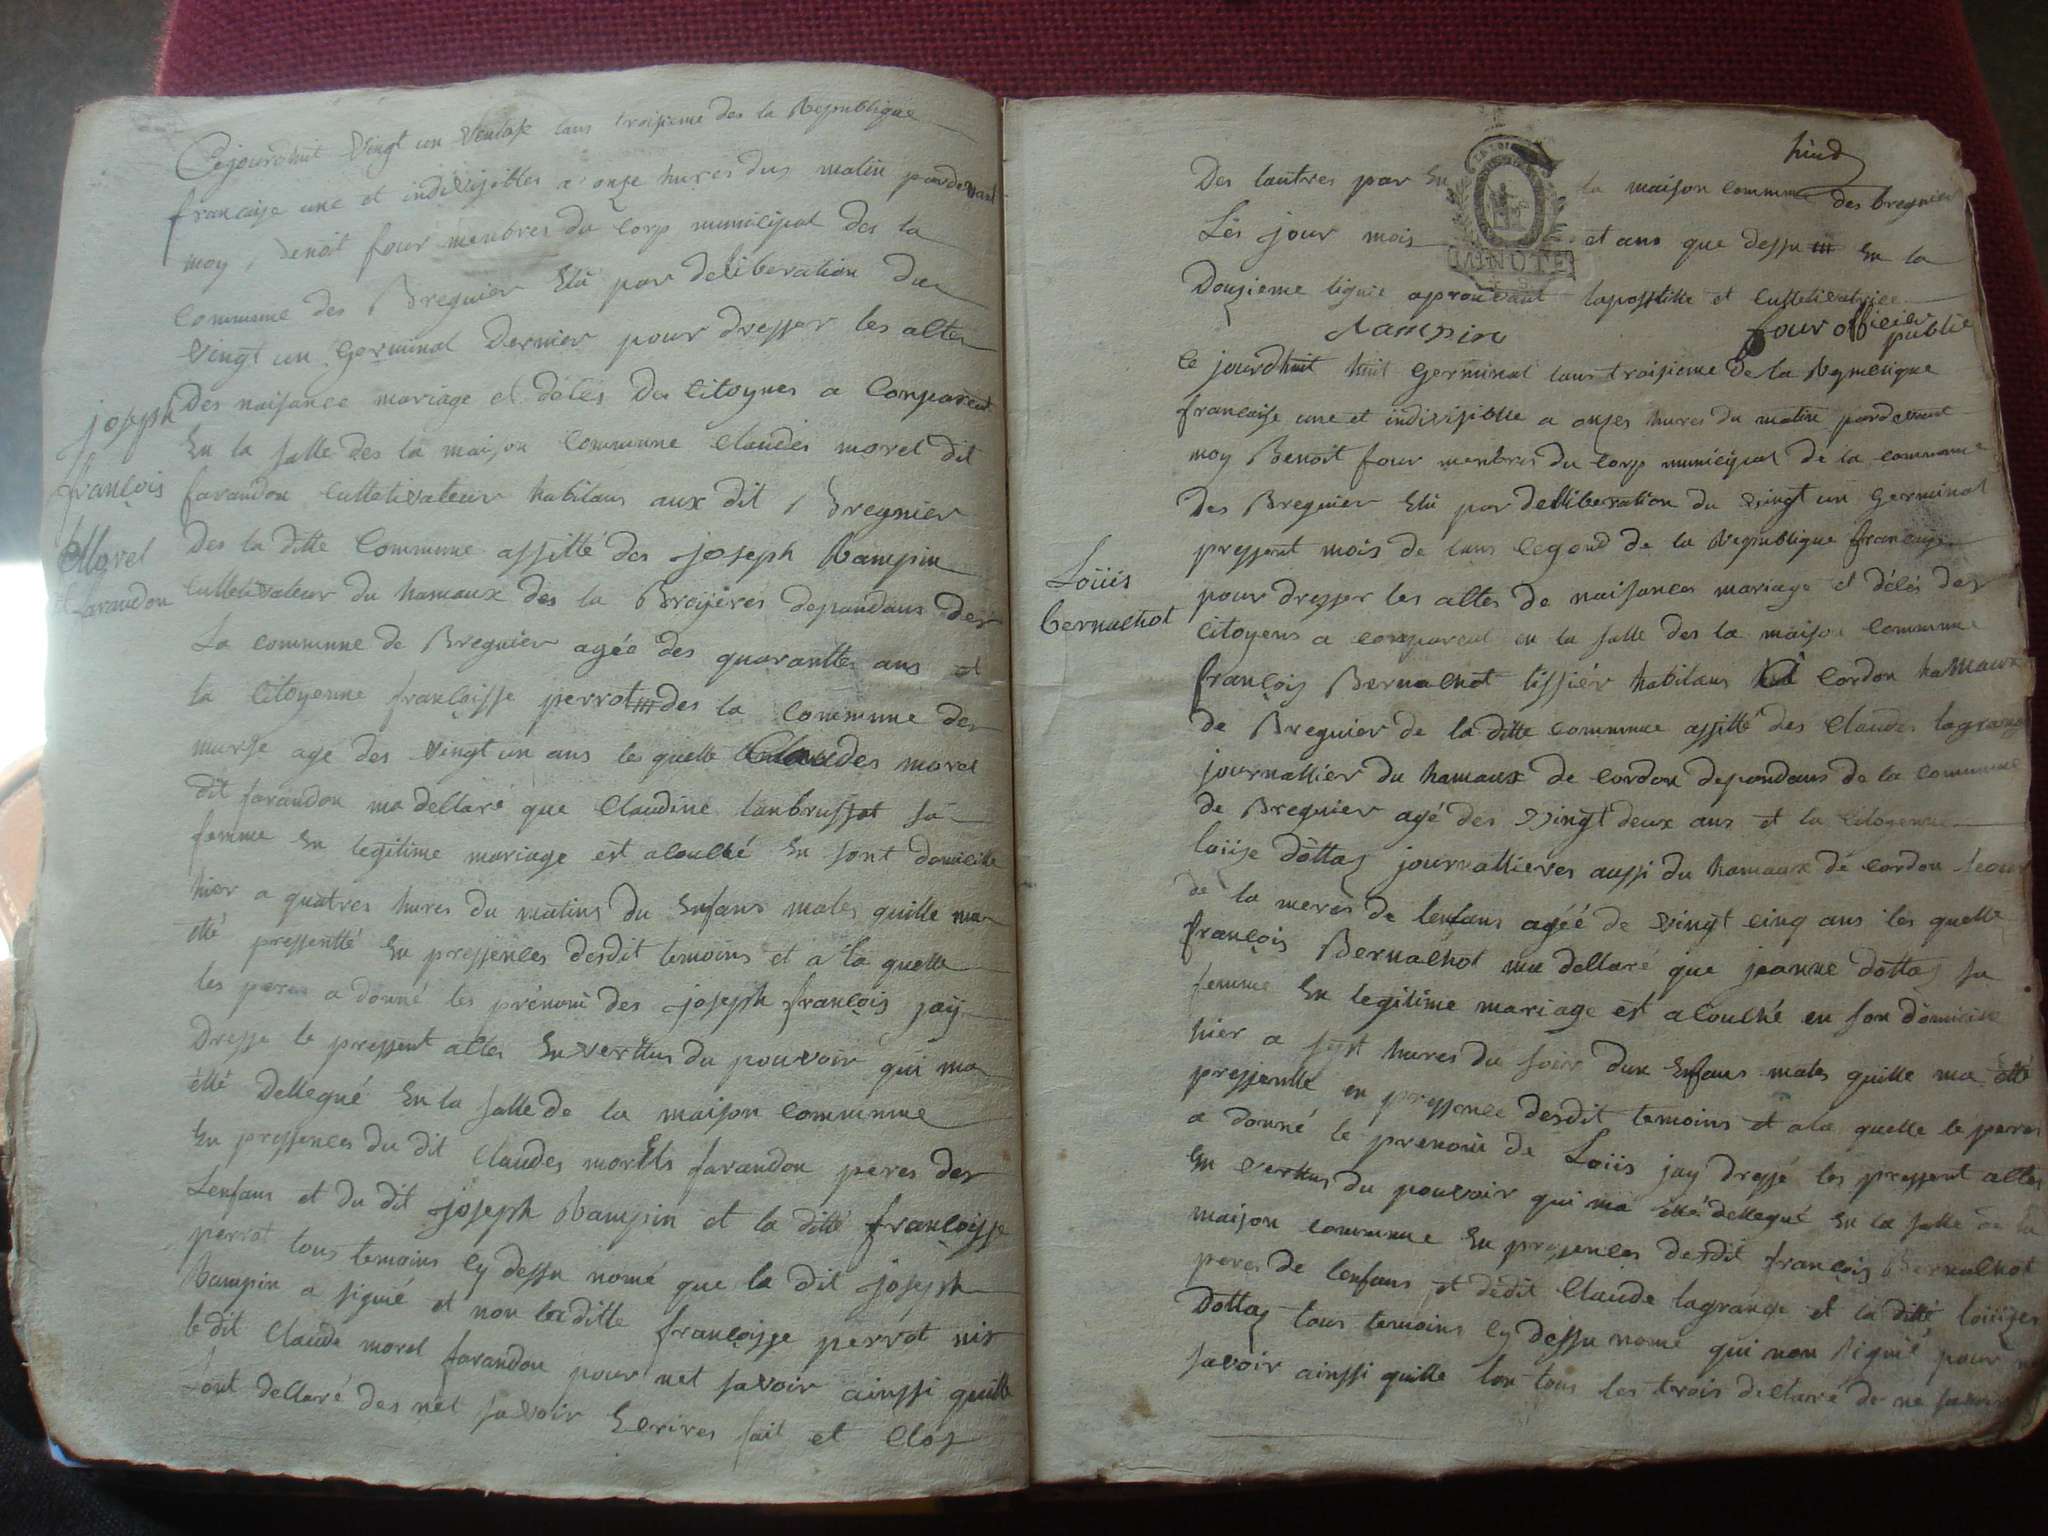 Cejourdhuit vingt un ventose lans troisieme des la Republique
francaise une et indivisibles a onze hures dus matin pardevant
moy, benoit four menbres du Corp municipal des la
Commune des Bregnier Elû par deliberation du
vingt un Germinal Dernier pour dresser les altes
Des naisance mariage et délés des Citoynes a Comparent
En la salle des la maison Commune Claudes morel dit
farandon Culletivateur habitans aux dit, Bregnier
Des la ditte Commune assitté des joseph Rampin
Culletivateur du hamaux des la Broÿères dependans des
La commune de Bregnier ageé des quarantte ans et
la Citoyenne francoisse perrot des la Commune des
murse age des vingt un ans les quelle Claudes morel
dit farandon ma dellaré que Claudine lanbrussat sa
femme En legitime mariage est aloulhé En sont domicille
hier a quatres hures du matins du Enfans males quille ma
été pressentté En pressences desdit temoins et a la quelle
les peres a donné les prénom des joseph françois jaÿ
Dresse le pressent altes En verttus du pouvoir qui ma
étté Dellegué En la salle de la maison Commune
En pressences du dit Claudes morels farandon peres des
Lenfans et du dit joseph Rampin et la ditte francoisse
perrot tous temoins Cy dessu nomé que la dit joseph
Rampin a signié et non la ditte francoisse perrot nis
le dit Claude morel farandon pour net savoir ainssi quille
Lont dellaré des net savoir Ecrires fait et Clos
joseph
françois
Morel
farandon
huid
Des lautres par En la maison commune des bregnier
Lés jour mois et ans que dessu En la
Douzieme lignie aprouvant lapostille et Culletivatrice
Rampin four officier
public
MINUTE
Ce jourdhuit huit Germinal lans troisieme de la Repueligue
francaise une et indivisible a onzes hures du matin pardevant
moy Benoit four menbres du Corp municipal de la commune
Des Bregnier Elû par delliberation du vingt un Germinal
pressent mois de lans Cegond de la Republique francaise
pour dresser les altes de naisances mariage et délés des
Citoyens a comparent en la salle des la maison Commune
françois Bernachot tissiér habitans a Cordon hamaux
de Bregnier de la ditte commune assitté des Claudes lagrange
journallier du hamaux de Cordon dependans de la Commune
de Bregnier agé des vingt deux ans et la Citoyenne
loiise dottas journallieres aussi du hamaux dé Cordon seour
de la meres de lenfans ageé de vingt cinq ans les quelle
françois Bernachot ma dellaré que jeanne Dottas sa
femme En legitime mariage est aloulhé en son domicille
hier a sept hures du soir dun Enfans males quille ma étté
pressentté en pressence desdit temoins et a la quelle le peres
a donné le prenom de Loiis jay dressé les pressent altes
En verttus du pouvoir qui ma étté dellegué En la salle de la
maison commune En pressences desdit françois Bernachot
peres de lenfans et dedit Claude lagrange et la ditte loiiizes
Dottas tous temoins Cy dessu nomé qui non signié pour ne
savoir ainssi quille lon tous les trois dellaré de ne savoir
Loiiis
bernachot